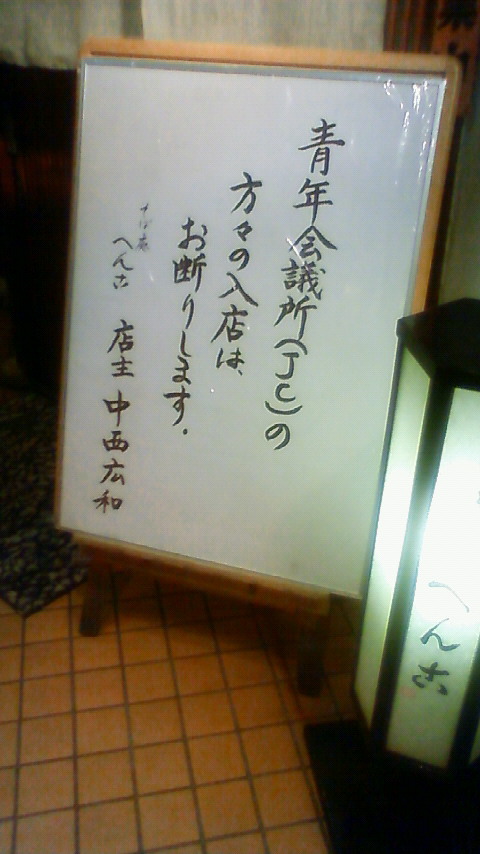 青年会議所(JC)の
方々の入店は、
お断りします.
そば庵
へん古 店主 中西広和
へん古